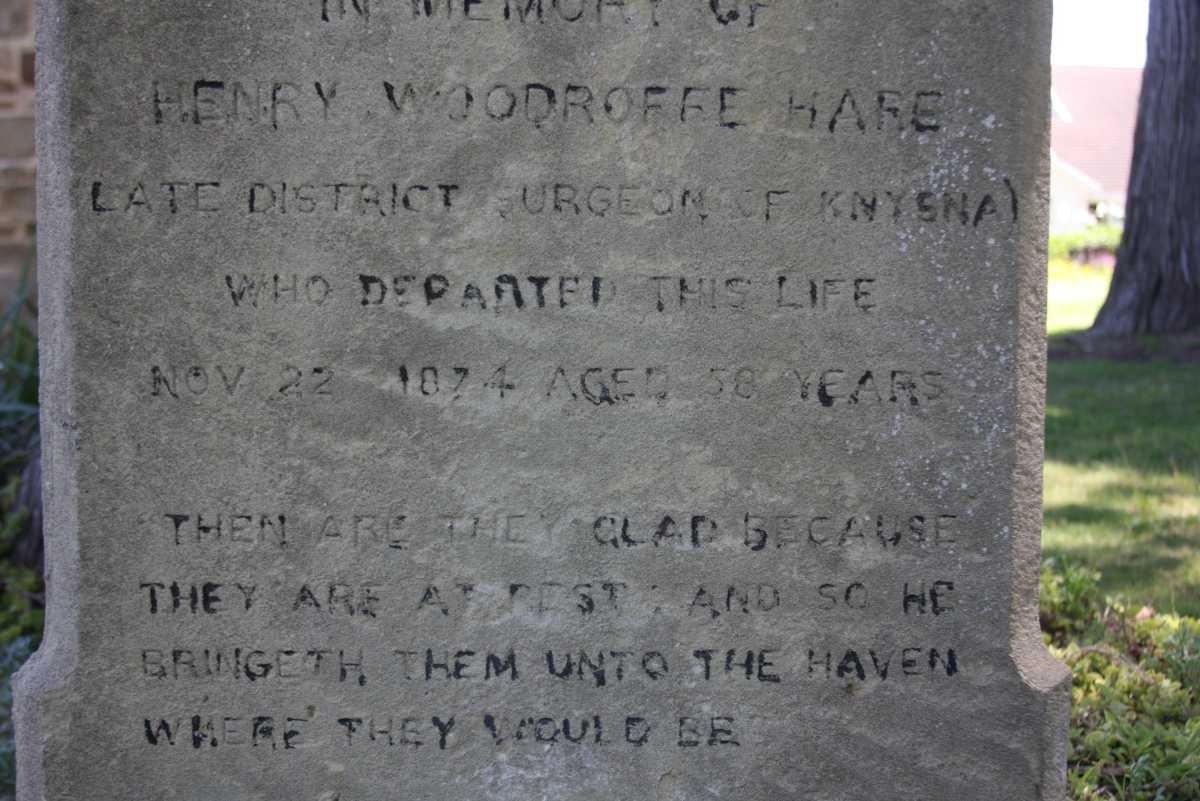 IN MEMORY OF
HENRY WOODROFFE HARE
(LATE DISTRICT SURGEON OF KNYSNA)
WHO DEPARTED THIS LIFE
NOV 22 1874 AGED 58 YEARS
THEN ARE THEY GLAD BECAUSE
THEY ARE AT REST : AND SO HE
BRINGETH THEM UNTO THE HAVEN
WHERE THEY WOULD BE